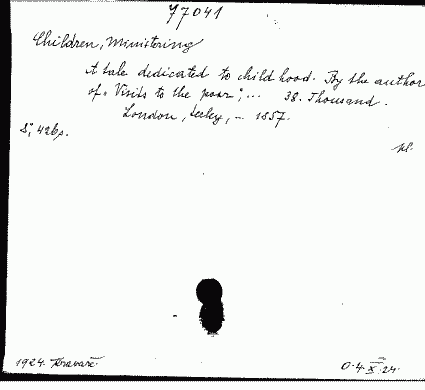 J7041
Children, Ministering
A tale dedicated to childhood. By the author
of „Visits to the poor“; ... 38. Thousand.
London, Seeley, – 1857.
8°, 426p.
pl.
1924. Kravaře
0.4.X.24.